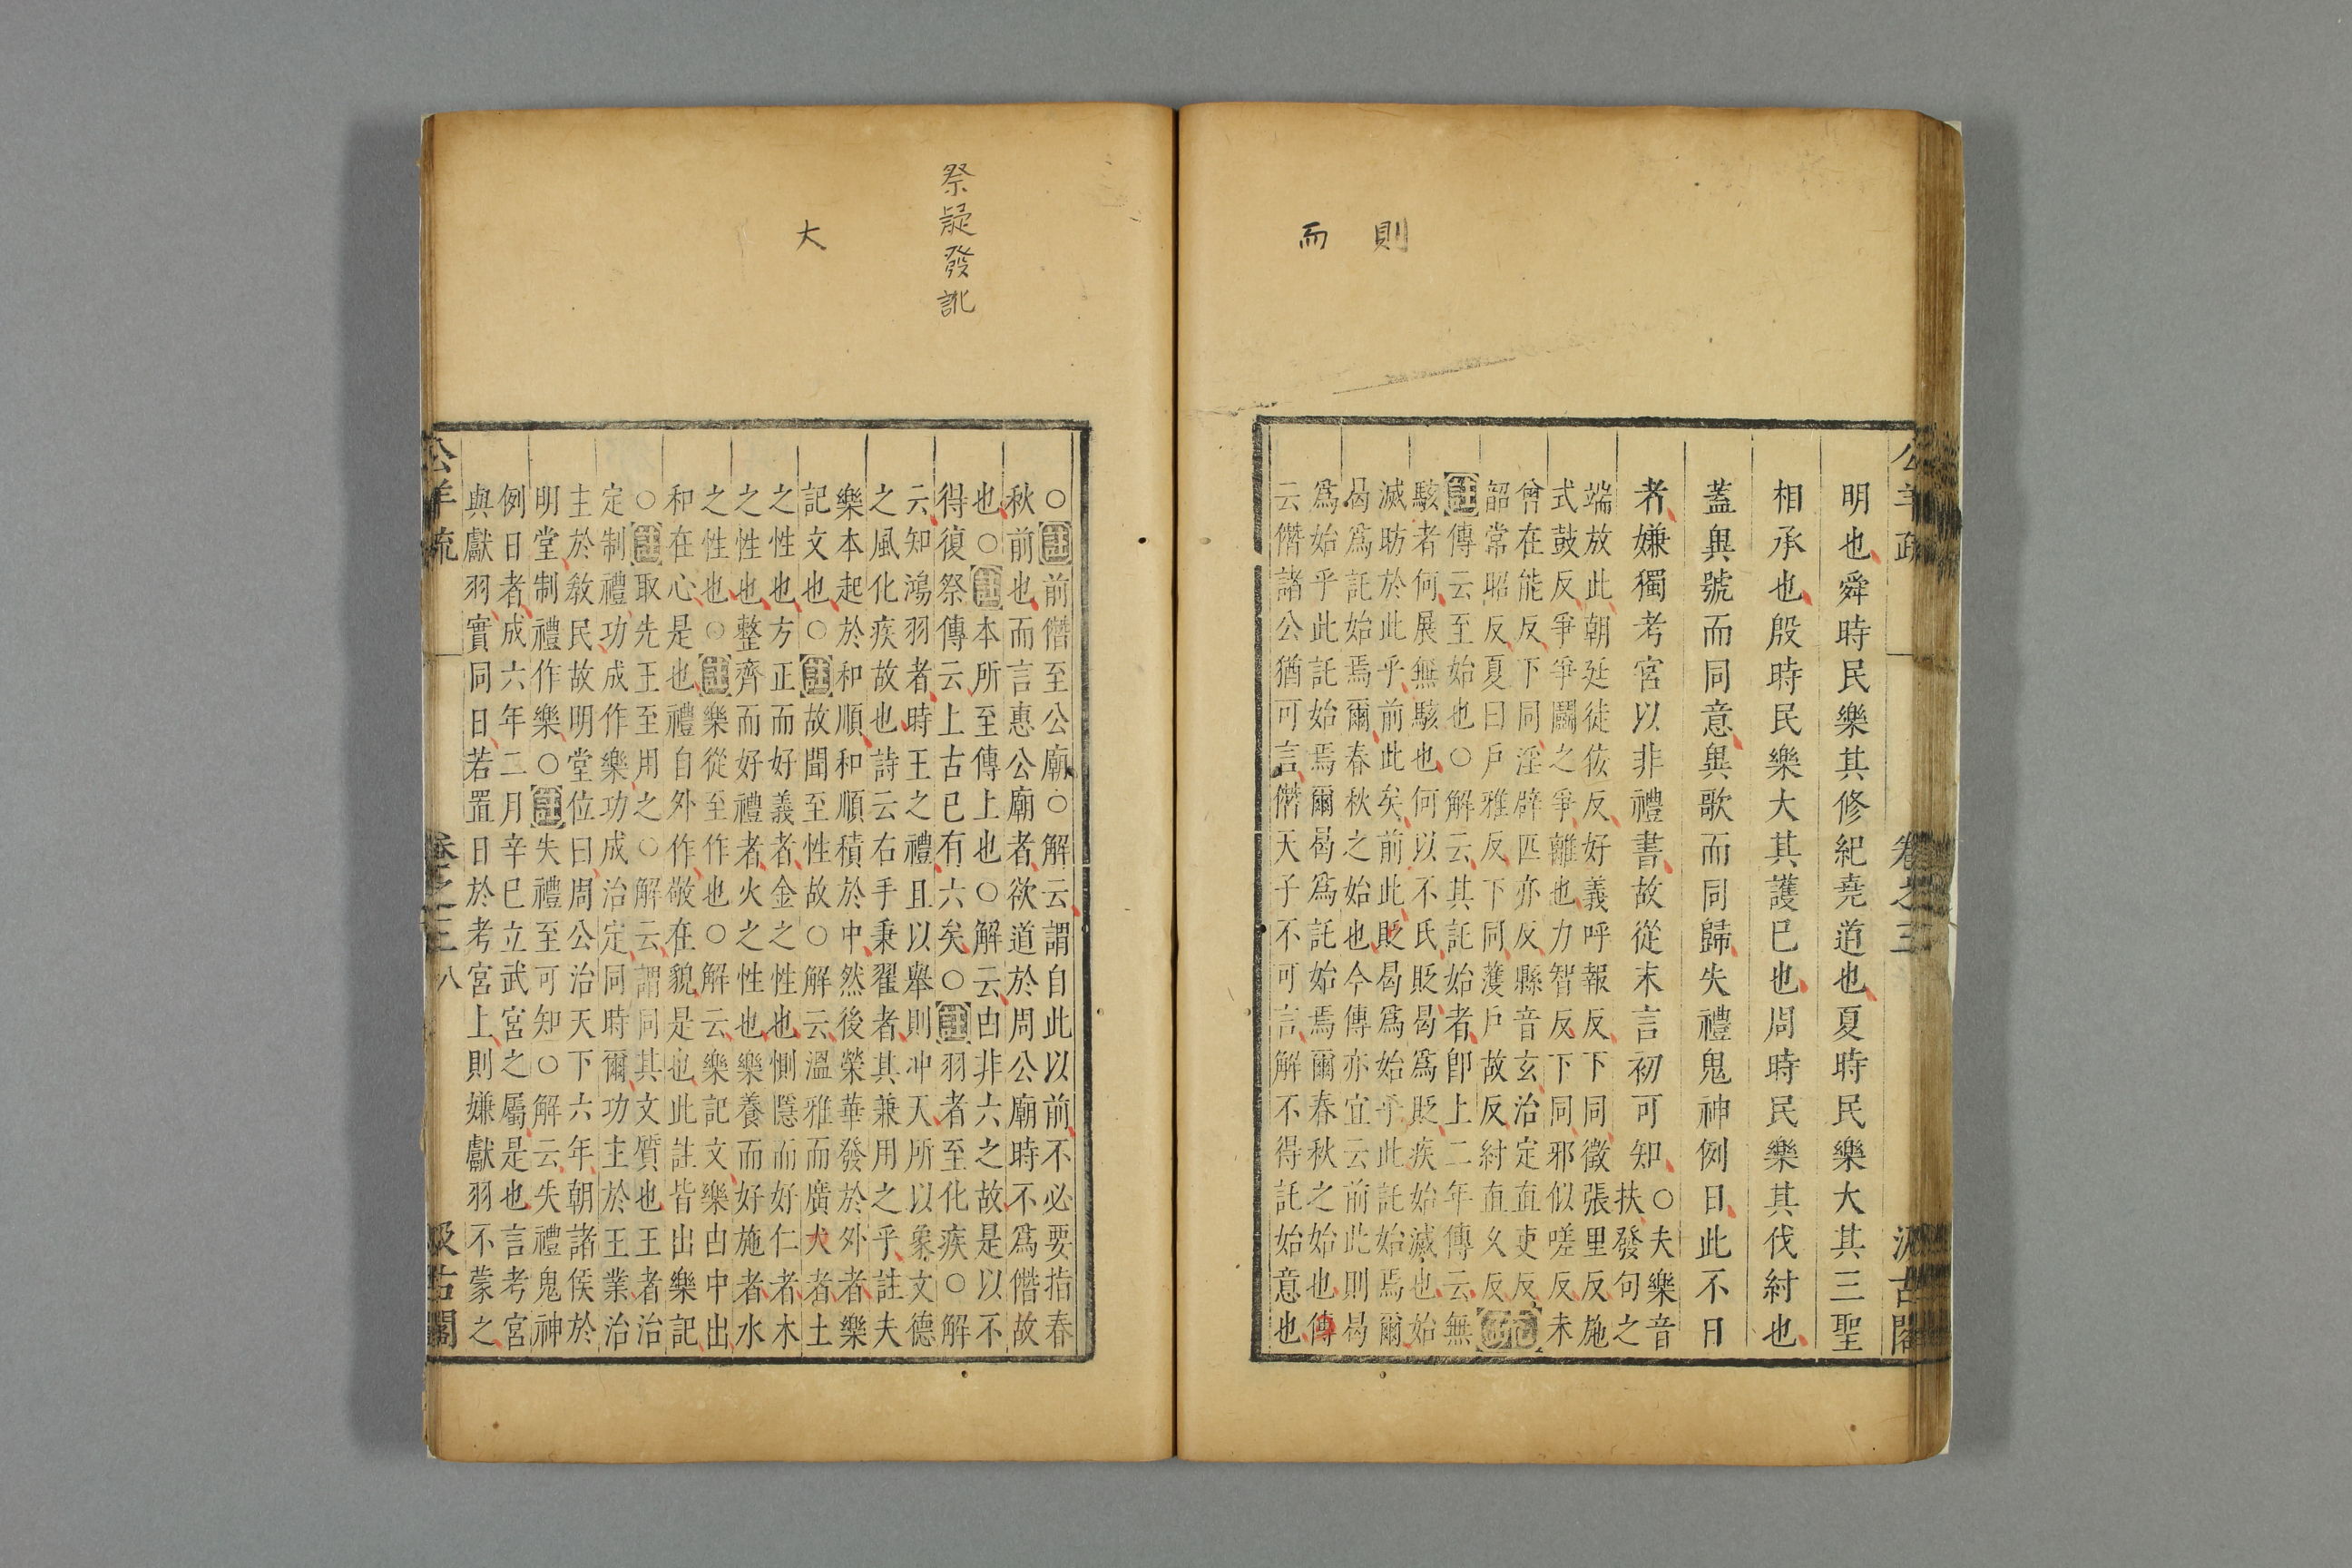 則
而
公羊疏 卷之三 汲古閣
明也舜時民樂其修紀堯道也夏時民樂大其三聖
相承也殷時民樂大其護已也周時民樂其伐紂也
蓋異號而同意異歌而同歸失禮鬼神例日此不日
者嫌獨考宮以非禮書故從末言初可知
○夫樂音
扶發句之
端放此朝廷徒佞反好義呼報反下同徵張里反施
式鼓反爭爭鬭之爭離也力智反下同邪似嗟反未
曾在能反下同淫辟匹亦反縣音玄治定直吏反
韶常昭反夏曰戶雅反下同濩戶故反紂直久反疏
註傳云至始也○解云其託始者卽上二年傳云無
駭者何展無駭也何以不氏貶曷爲貶疾始滅也始
滅昉於此乎前此矣前此貶曷爲始乎此託始焉爾
曷爲託始焉爾春秋之始也今傳亦宜云前此則曷
爲始乎此託始焉爾曷爲託始焉爾春秋之始也傳
云僭諸公猶可言僭天子不可言解不得託始意也
祭疑發訛
大
○註前僭至公廟○解云謂自此以前不必要指春
秋前也而言惠公廟者欲道於周公廟時不爲僭故
也○註本所至傳上也○解云凷非六之故是以不
得復祭傳云上古已有六矣○註羽者至化疾○解
云知鴻羽者時王之禮且以舉則冲天所以象文德
之風化疾故也詩云右手秉翟者其兼用之乎註夫
樂本起於和順和順積於中然後榮華發於外者樂
記文也○註故聞至性故○解云溫雅而廣大者土
之性也方正而好義者金之性也惻隱而好仁者木
之性也整齊而好禮者火之性也樂養而好施者水
之性也○註樂從至作也○解云樂記文樂凷中出
和在心是也禮自外作敬在貌是也此註皆出樂記
○註取先王至用之○解云謂同其文質也王者治
定制禮功成作樂功成治定同時爾功主於王業治
主於敎民故明堂位曰周公治天下六年朝諸侯於
明堂制禮作樂○註失禮至可知○解云失禮鬼神
例日者成六年二月辛巳立武宮之屬是也言考宮
與獻羽實同日若置日於考宮上則嫌獻羽不蒙之
公羊疏 卷之三 八 汲古閣